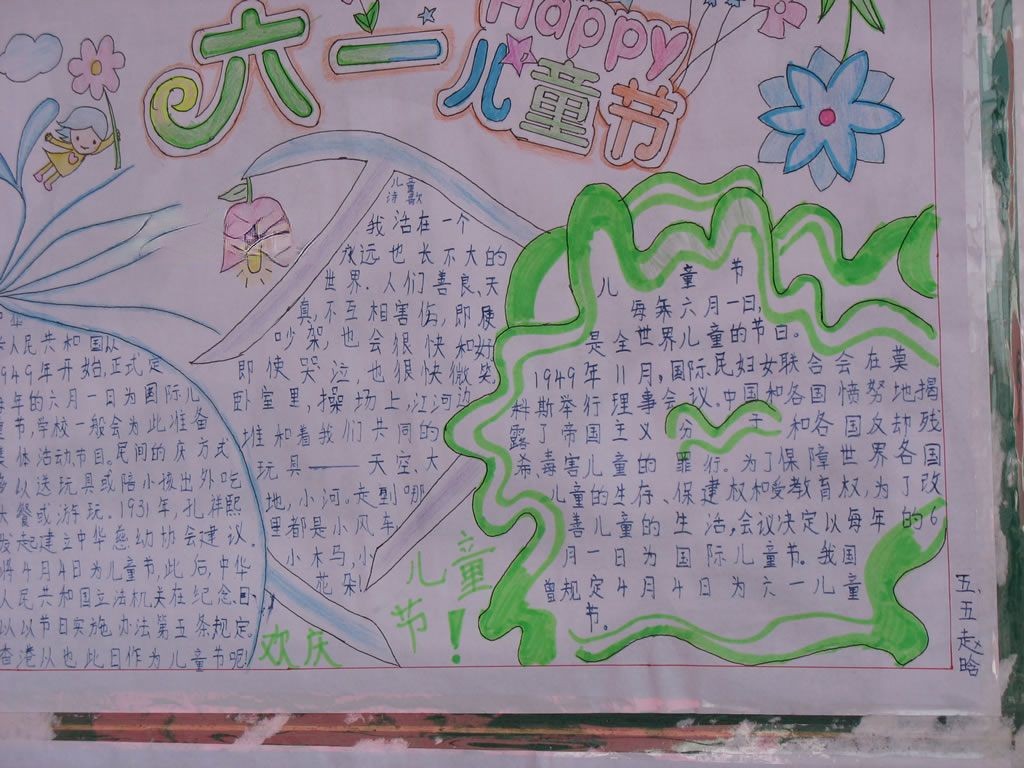 六一
Happy
儿童节
中华
人民共和国从
1949年开始,正式定
每年的六月一日为国际儿
童节,学校一般会为此准备
集体活动节目。民间的庆方式
以送玩具或陪小孩出外吃
大餐或游玩。1931年,孔祥熙
发起建立中华慈幼协会建议
将4月4日为儿童节,此后,中华
人民共和国立法机关在纪念日
以以节日实施办法第五条规定。
香港以也此日作为儿童节呢!
儿童
诗歌
我活在一个
永远也长不大的
世界.人们善良、天
真,不互相害伤,即使
吵架,也会很快和好
即使哭泣,也很快微笑
卧室里,操场上,江河边
堆和着我们共同的
玩具——天空、大
地,小河。走到哪
里都是小风车
小木马,小
花朵!
欢庆
儿童
节!
儿童节
每年六月一曰,
是全世界儿童的节日。
1949年11月,国际民妇女联合会在莫
科斯举行理事会议。中国和各国愤努地揭
露了帝国主义分子和各国反却残
杀、毒害儿童的罪行。为了保障世界各国
儿童的生存、保建权和受教育权,为了改
善儿童的生活,会议决定以每年的6
月一日为国际儿童节。我国
曾规定4月4日为六一儿童
节。
五、五赵晗